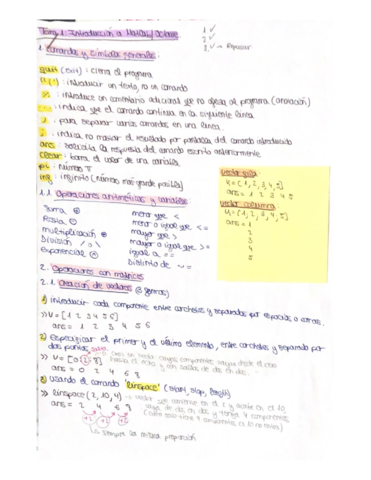 Tema 1: Introducción a Matlab/Octave
1. ✓
2. ✓
3. ✓ → Repasar
1. Comandos y símbolos generales.
quit (exit) : cierra el programa
: introducir un texto, no un comando
% : introduce un comentario adicional que no afecta al programa (anotación)
... : indica que el comando continúa en la siguiente línea
, : para separar varios comandos en una línea
; : indica no mostrar el resultado por pantalla del comando introducido
ans : solicita la respuesta del comando escrito anteriormente
clear : borra el valor de una variable
pi : número π
inf : infinito (número más grande posible)
vector fila
v = [1, 2, 3, 4, 5]
ans = 1 2 3 4 5
vector columna
v = [1; 2; 3; 4; 5]
ans = 1
2
3
4
5
1.1. Operaciones aritméticas y variables
Suma +
Resta -
multiplicación *
División / o \
Exponencial
menor que <
menor o igual que <=
mayor que >
mayor o igual que >=
igual a ==
Distinto de ~=
2. Operaciones con matrices
2.1. Creación de vectores (3 formas)
1) introducir cada componente entre corchetes y separados por espacios o comas.
>> v = [1 2 3 4 5 6]
ans = 1 2 3 4 5 6
2) Especificar el primer y el último elemento, entre corchetes y separado por
dos puntos
>> v = [0:2:8]
ans = 0 2 4 6 8
3) Usando el comando 'linspace' (start, stop, length)
>> linspace (2, 10, 4)
ans = 2 4 6 8
+2 +2 +2
↳ siempre la misma proporción